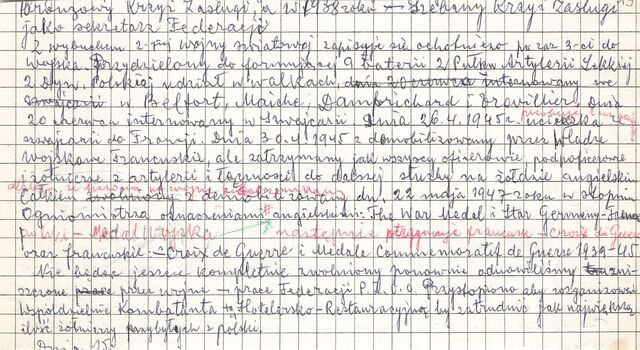 Bronzowy Krzyż Zasługi, a w 1938 roku – Srebrny Krzyż Zasługi
jako sekretarz Federacji
Z wybuchem 2-ej wojny światowej zapisuje się ochotniczo po raz 3-ci do
wojska. Przydzielony do formującej 9 Baterii 2 Pułku Artylerii Lekkiej
2 dyw. Polskiej udział w walkach, we
w Belfort, Maiche, Damprichard i Dnia
20 czerwca internowany w Szwajcarii. Dnia 26.4.1945r. ucieczka z
szwajcarii do Francji. Dnia 30.4.1945 zdemobilizowany przez władze
wojskowe Francuskie, ale zatrzymany jak wszyscy oficerowie, podpoficerowie
i żołnierze z artylerii i łączności do dalszej służby na żołdzie angielskim
Całkiem zdemobilizowany dn. 22 maja 1947 roku w stopniu
Ogniomistrza odznaczeniami angielskimi: The War Medal i Star Germeny-France
polski – Medal Wojska następnie otrzymuje francusk – Croix de Guerre
oraz francuskie – Croix de Guerre i Medale Commemoratif de Guerre 1939-45
Nie będąc jeszcze kompletnie zwolniony ponownie odnowiliśmy
szczone przez wojnę – prace Federacji P.Z.O.O. Przystąpiono aby zorganizować
Współdzielnie Kombatanta Hotelorsko-Restauracyjną by zatrudnić jak największą
ilość żołnierzy przybyłych z polski.
Dnia 15